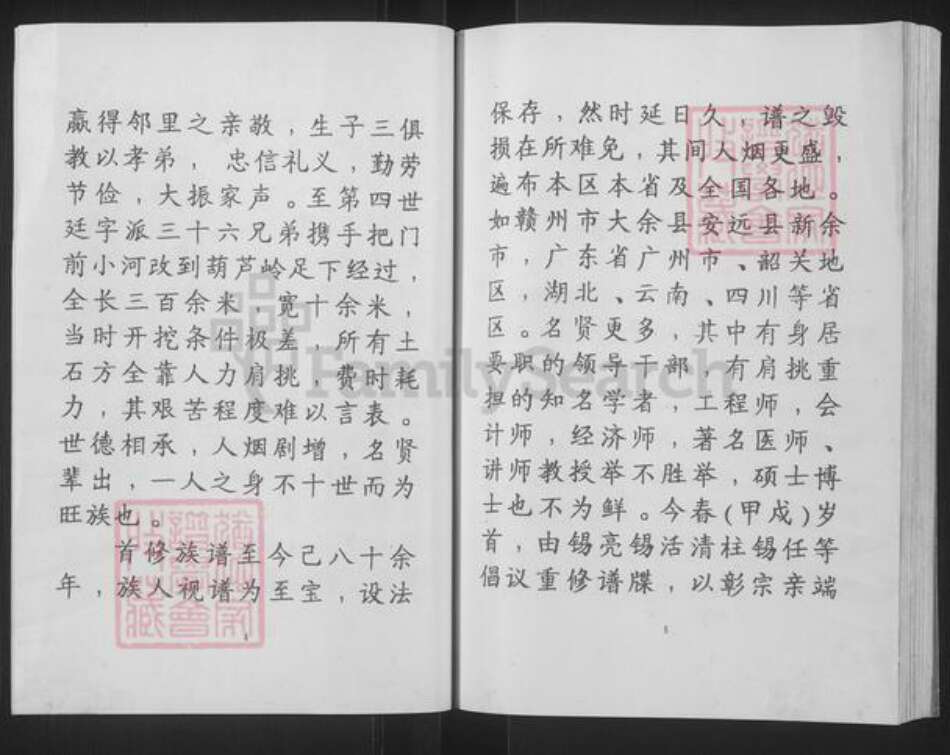 赢得邻里之亲敬，生子三俱
教以孝弟， 忠信礼义，勤劳
节俭，大振家声。至第四世
廷字派三十六兄弟携手把门
前小河改到葫芦岭足下经过，
全长三百余米，宽十余米，
当时开挖条件极差，所有土
石方全靠人力肩挑，费时耗
力，其艰苦程度难以言表。
世德相承，人烟剧增，名贤
辈出，一人之身不十世而为
旺族也。
首修族谱至今己八十余
年，族人视谱为至宝，设法
4
保存，然时延日久，谱之毁
损在所难免，其间人烟更盛，
遍布本区本省及全国各地。
如赣州市大余县安远县新余
市，广东省广州市、韶关地
区，湖北、云南、四川等省
区。名贤更多，其中有身居
要职的领导干部，有肩挑重
担的知名学者，工程师，会
计师，经济师，著名医师、
讲师教授举不胜举，硕士博
士也不为鲜。今春(甲戍)岁
首，由锡亮锡活清柱锡任等
倡议重修谱牒，以彰宗亲端
FamilySearch